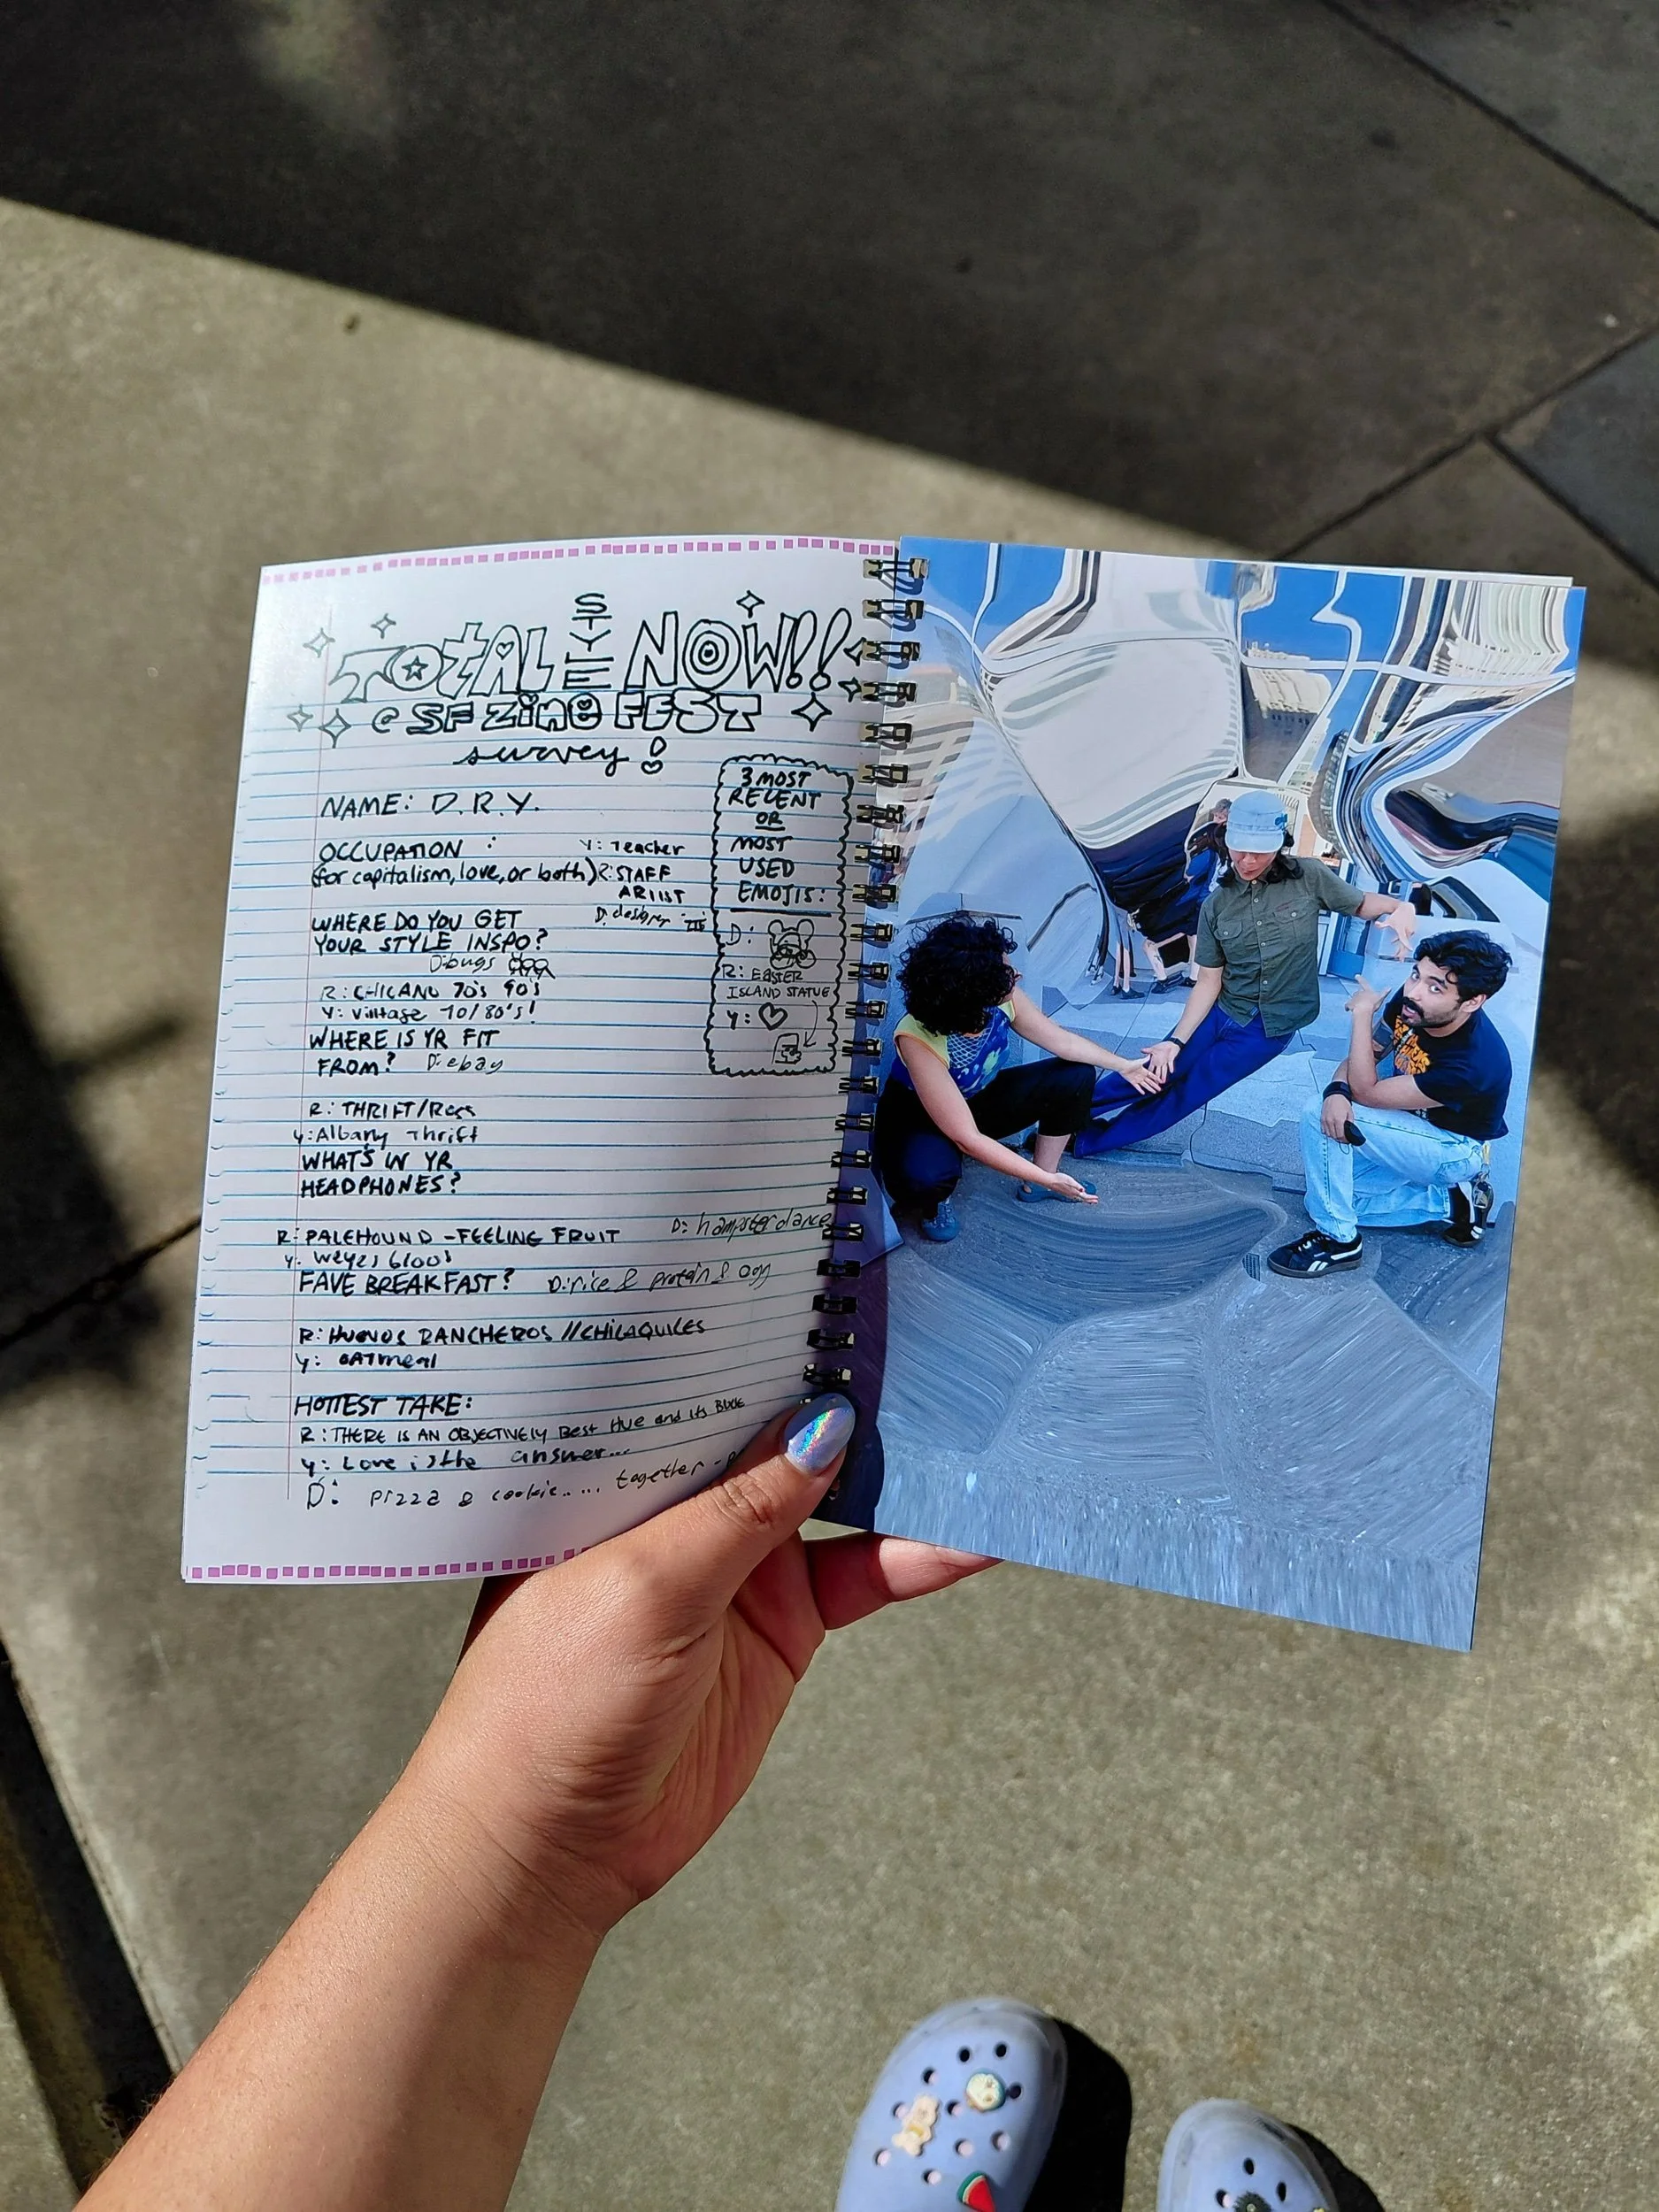 TOTAL STYLE NOW!!
@ SF ZINE FEST
survey!
NAME: D.R.Y.
OCCUPATION :
(for capitalism, love, or both)
Y: Teacher
R: STAFF
ARTIST
D: designer
WHERE DO YOU GET
YOUR STYLE INSPO?
D: bugs
R: CHICANO 70's 90's
Y: Vintage 70/80's!
WHERE IS YR FIT
FROM? D: ebay
R: THRIFT/Ross
Y: Albany Thrift
WHAT'S IN YR
HEADPHONES?
D: hampsterdance
R: PALEHOUND - FEELING FRUIT
Y: Weyes blood
FAVE BREAKFAST? D: rice & protein & egg
R: HUEVOS RANCHEROS // CHILAQUILES
Y: OATmeal
HOTTEST TAKE:
R: THERE IS AN OBJECTIVELY BEST HUE and ITS BLUE
Y: Love is the answer...
D: pizza & cookie..... together -
3 MOST
RECENT
OR
MOST
USED
EMOJIS:
D:
R: EASTER
ISLAND STATUE
Y: